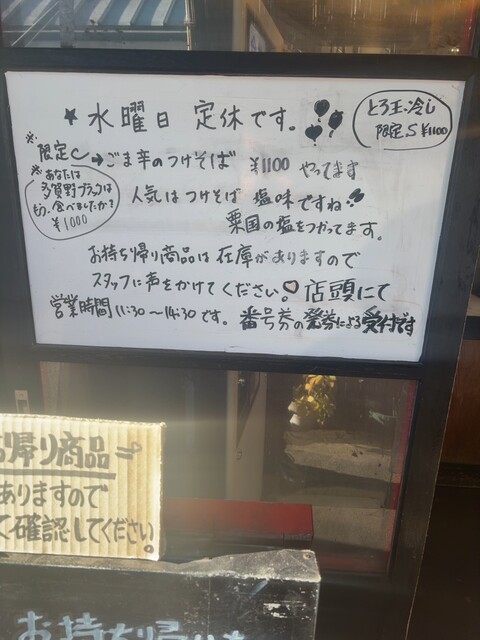 ★水曜日 定休です。
とろ玉冷し
限定S ¥1100
※限定C→ごま辛のつけそば ¥1100 やってます
※あなたは
多賀野ブラックは
もう食べましたか?
¥1000
人気はつけそば 塩味ですね
粟国の塩をつかってます。
お持ち帰り商品は在庫がありますので
スタッフに声をかけてください。♡店頭にて
営業時間11:30〜14:30です。番号券の発券による受付です
帰り商品
ありますので
確認してください。
お持ち帰り